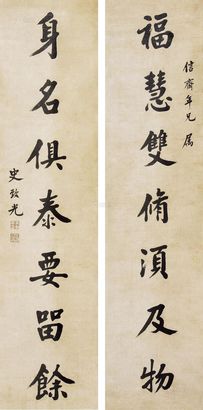 福慧雙脩須及物
信齋年兄属
身名俱泰要留餘
史致光